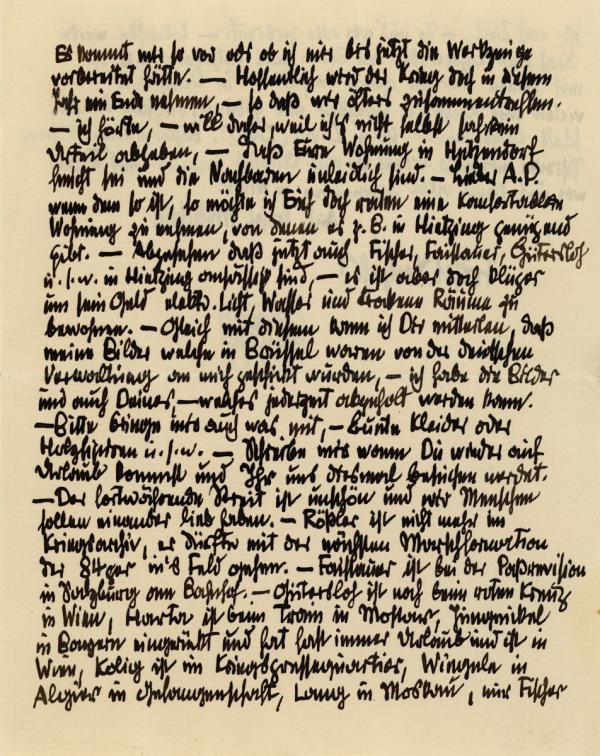 Es kommt mir so vor als ob ich mir bis jetzt die Werkzeuge
vorbereitet hätte. — Hoffentlich wird der Krieg doch in diesem
Jahr ein Ende nehmen, — so daß wir öfters zusammentreffen.
— ich hörte, — will daher, weil ich's nicht selbst sah kein
Urteil abgeben, — daß Eure Wohnung in Hütteldorf
feucht sei und die Nachbaren unleidlich sind. — Lieber A.P.
wenn dem so ist, so möchte ich Euch doch raten eine komfortablen
Wohnung zu nehmen, von denen es z. B. in Hietzing genügend
gibt. — Abgesehen daß jetzt auch Fischer, Faistauer, Gütersloh
u. s. w. in Hietzing ansässig sind, — es ist aber doch klüger
um sein Geld elektr. Licht, Wasser und trockene Räume zu
bewohnen. — Gleich mit diesem kann ich Dir mitteilen, daß
meine Bilder welche in Brüssel waren von der deutschen
Verwaltung an mich geschickt wurden, — ich habe die Bilder
und auch Deines, — welches jederzeit abgeholt werden kann.
— Bitte bringe uns auch was mit, — Bunte Kleider oder
Holzfiguren u. s. w. — Schreibe mir wann Du wieder auf
Urlaub kommst und Ihr uns diesmal besuchen werdet.
— Der fortwährende Streit ist unschön und wir Menschen
sollen einander lieb haben. — Rößler ist nicht mehr im
Kriegsarchiv, er dürfte mit der nächsten Marschformation
der 84ger in's Feld gehen. — Faistauer ist bei der Paßrevision
in Salzburg am Bahnhof. — Gütersloh ist noch beim roten Kreuz
in Wien, Harta ist beim Train in Mostar, Jungnickel
in Bayern eingerückt und hat fast immer Urlaub und ist in
Wien, Kolig ist im Kriegspressequartier, Wiegele in
Algier in Gefangenschaft, Lang in Moskau, nur Fischer